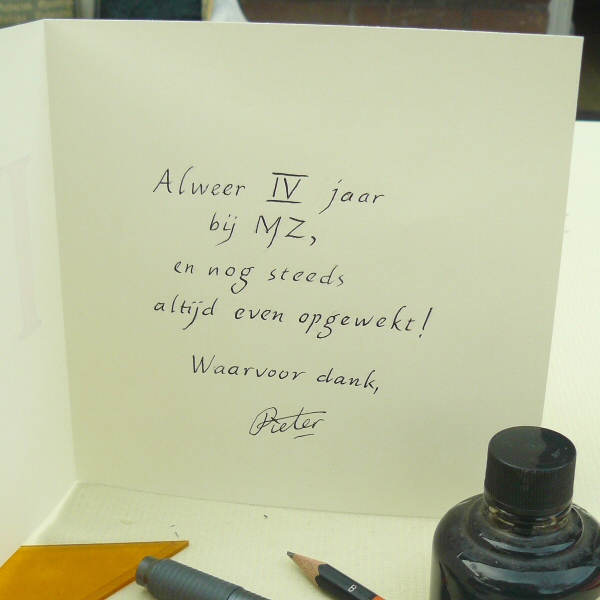 Alweer IV jaar
bij MZ,
en nog steeds
altijd even opgewekt!
Waarvoor dank,
Pieter
B